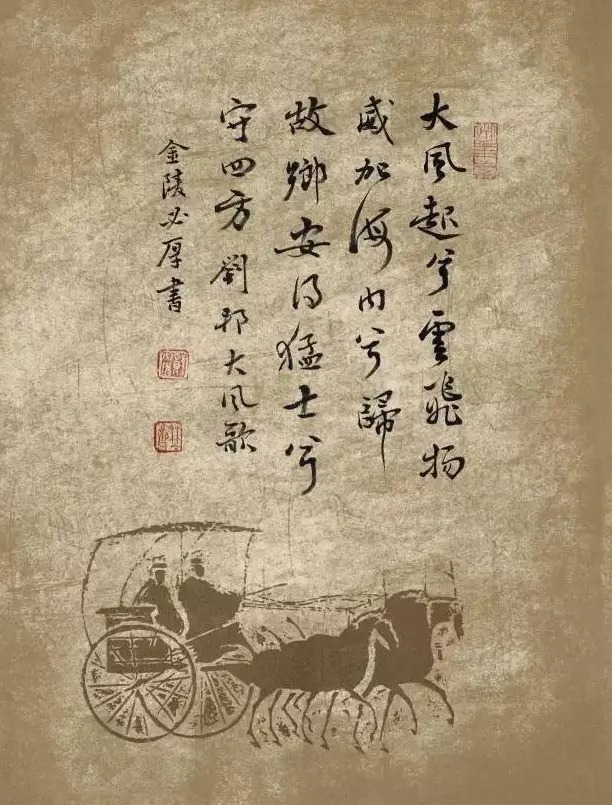 大風起兮雲飛揚
威加海内兮歸
故鄉安得猛士兮
守四方 劉邦大风歌
金陵必厚書